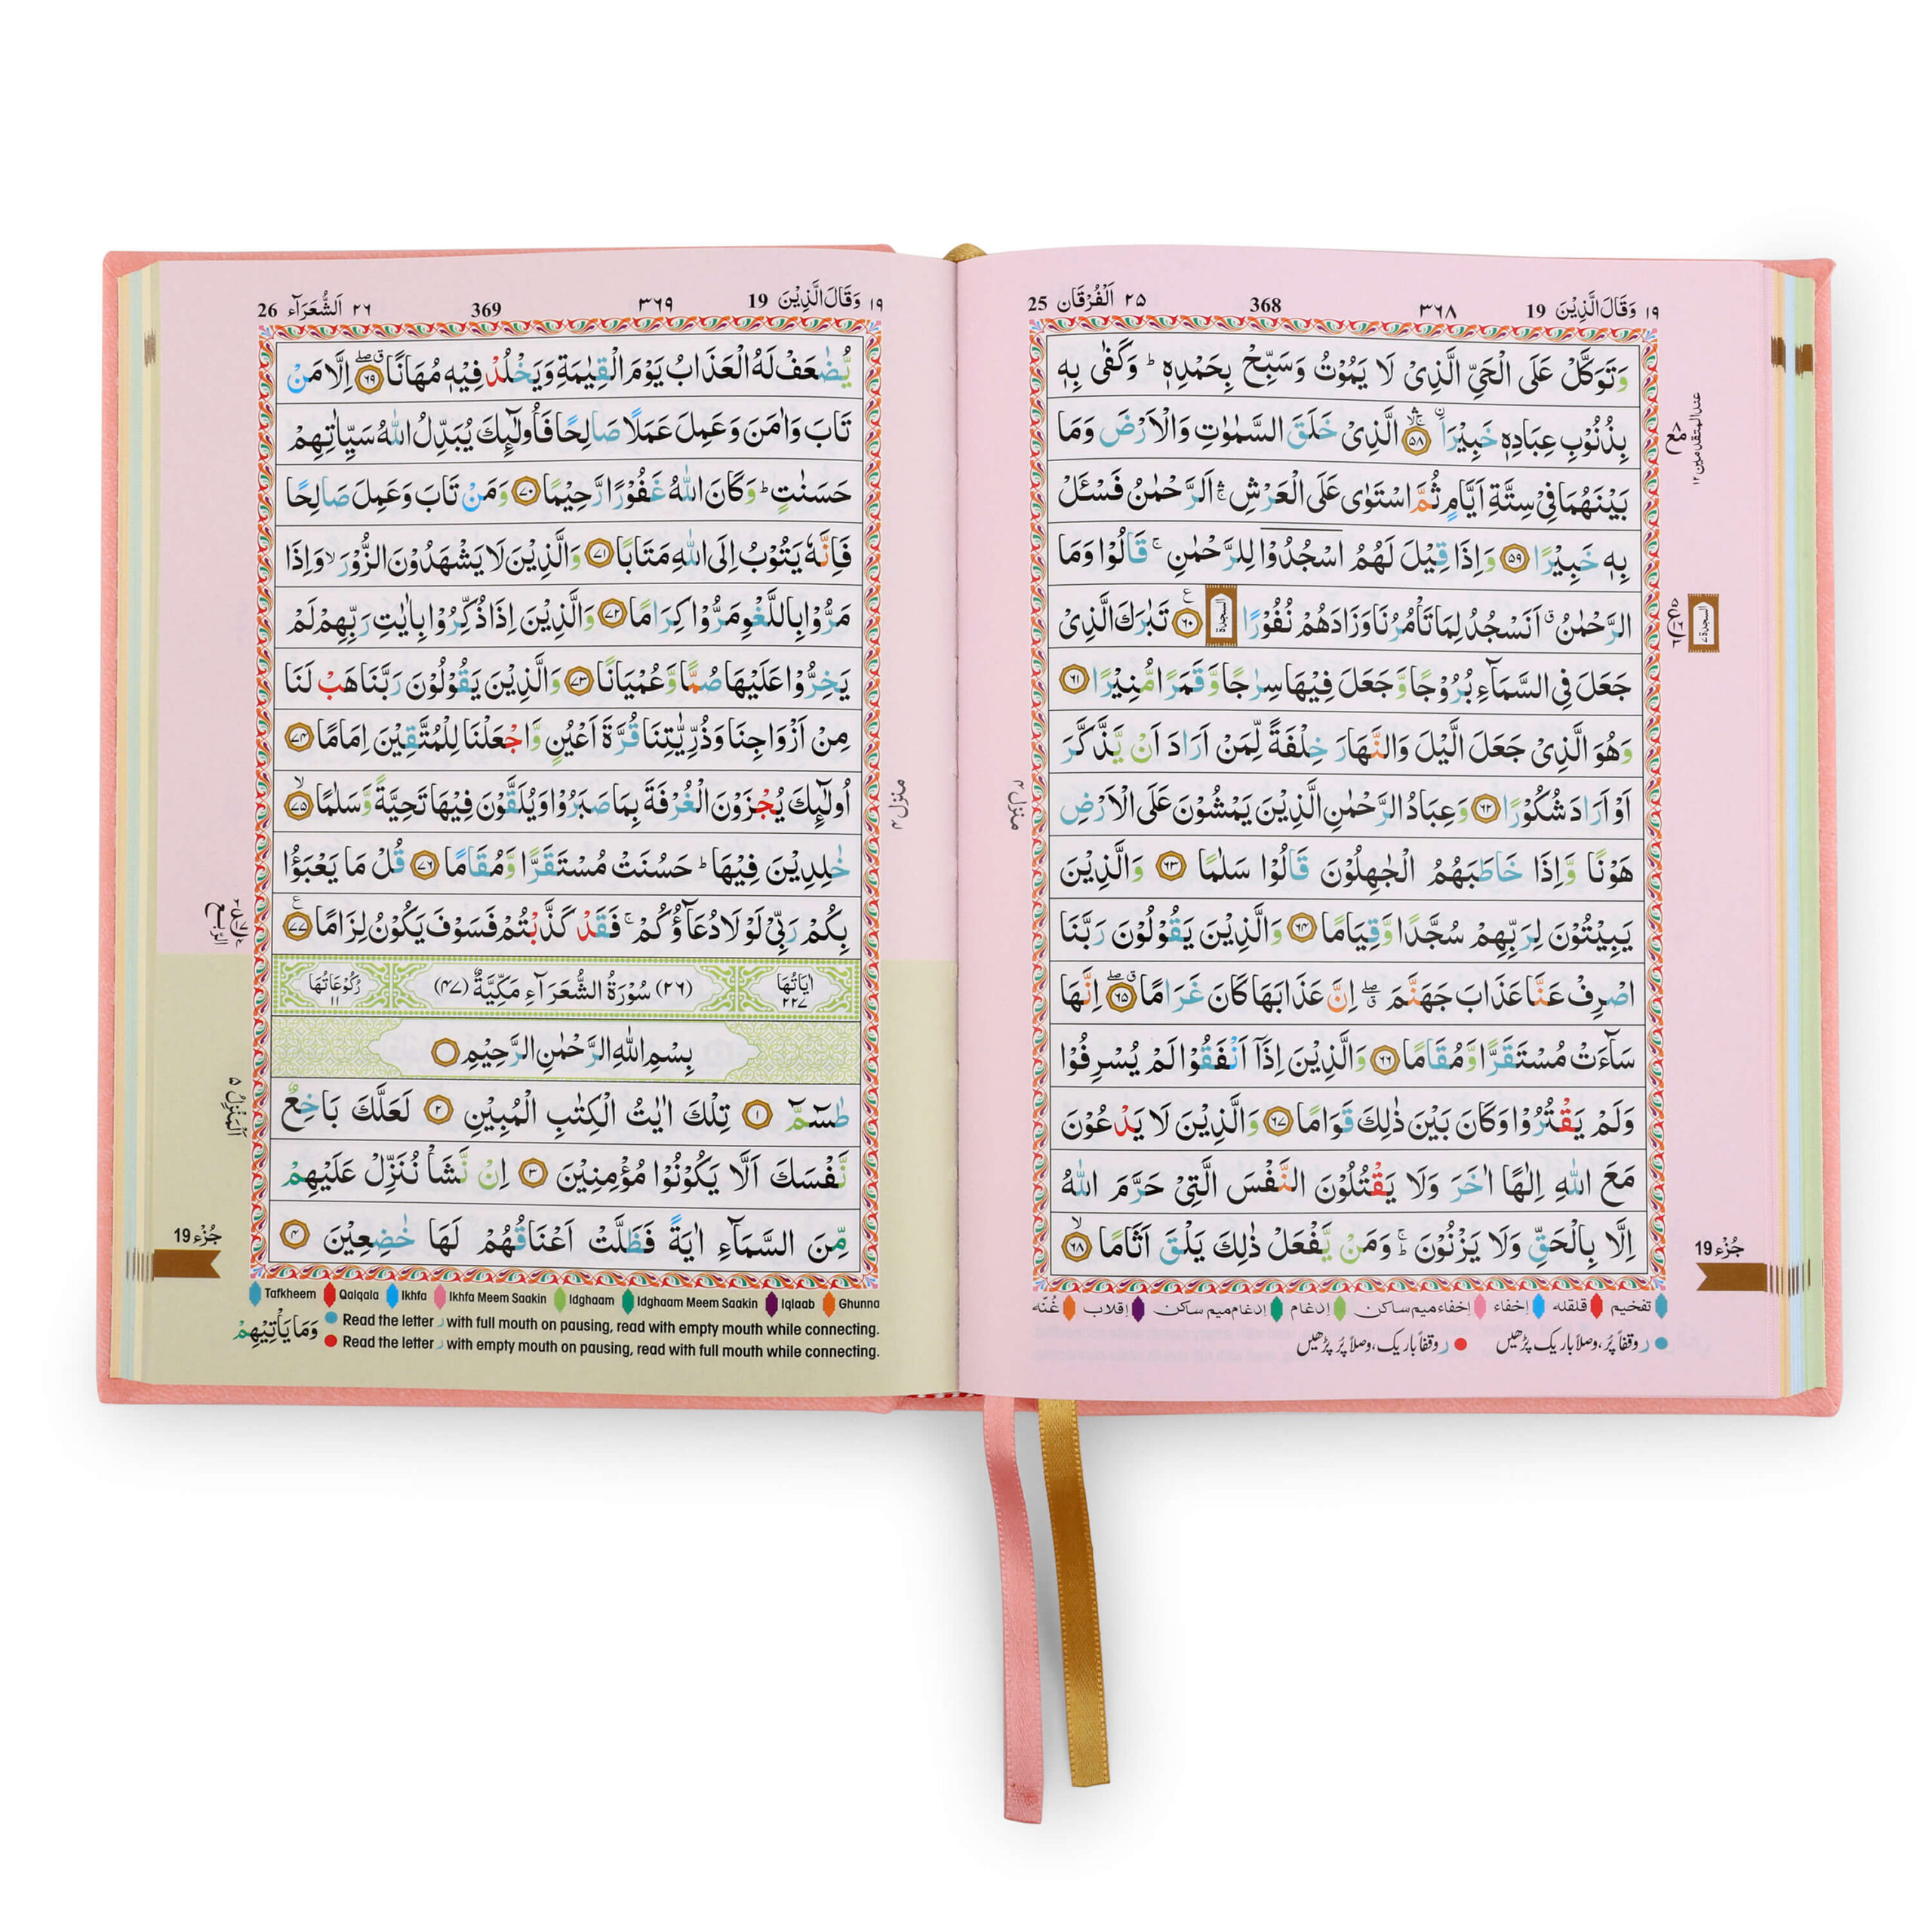 ١٩ وَقَالَ الَّذِيْنَ 19 ٣٦٨ 368 ٢٥ اَلْفُرْقَان 25
وَتَوَكَّلْ عَلَى الْحَيِّ الَّذِىْ لَا يَمُوْتُ وَسَبِّحْ بِحَمْدِهٖ ؕ وَكَفٰى بِهٖ
بِذُنُوْبِ عِبَادِهٖ خَبِيْرَاۚۛ ۙ ﴿٥٨﴾ الَّذِىْ خَلَقَ السَّمٰوٰتِ وَالْاَرْضَ وَمَا
بَيْنَهُمَا فِىْ سِتَّةِ اَيَّامٍ ثُمَّ اسْتَوٰى عَلَى الْعَرْشِ ۛۚ اَلرَّحْمٰنُ فَسْـَٔلْ
بِهٖ خَبِيْرًا ﴿٥٩﴾ وَاِذَا قِيْلَ لَهُمُ اسْجُدُوْا لِلرَّحْمٰنِ ۚ قَالُوْا وَمَا
الرَّحْمٰنُ ۗ اَنَسْجُدُ لِمَا تَاْمُرُنَا وَزَادَهُمْ نُفُوْرًا السجدة ﴿٦٠﴾ تَبٰرَكَ الَّذِىْ
جَعَلَ فِى السَّمَآءِ بُرُوْجًا وَّجَعَلَ فِيْهَا سِرٰجًا وَّقَمَرًا مُّنِيْرًا ﴿٦١﴾
وَهُوَ الَّذِىْ جَعَلَ الَّيْلَ وَالنَّهَارَ خِلْفَةً لِّمَنْ اَرَادَ اَنْ يَّذَّكَّرَ
اَوْ اَرَادَ شُكُوْرًا ﴿٦٢﴾ وَعِبَادُ الرَّحْمٰنِ الَّذِيْنَ يَمْشُوْنَ عَلَى الْاَرْضِ
هَوْنًا وَّاِذَا خَاطَبَهُمُ الْجٰهِلُوْنَ قَالُوْا سَلٰمًا ﴿٦٣﴾ وَالَّذِيْنَ
يَبِيْتُوْنَ لِرَبِّهِمْ سُجَّدًا وَّقِيَامًا ﴿٦٤﴾ وَالَّذِيْنَ يَقُوْلُوْنَ رَبَّنَا
اصْرِفْ عَنَّا عَذَابَ جَهَنَّمَ ۖ اِنَّ عَذَابَهَا كَانَ غَرَامًا ﴿٦٥﴾ اِنَّهَا
سَآءَتْ مُسْتَقَرًّا وَّمُقَامًا ﴿٦٦﴾ وَالَّذِيْنَ اِذَاۤ اَنْفَقُوْا لَمْ يُسْرِفُوْا
وَلَمْ يَقْتُرُوْا وَكَانَ بَيْنَ ذٰلِكَ قَوَامًا ﴿٦٧﴾ وَالَّذِيْنَ لَا يَدْعُوْنَ
مَعَ اللّٰهِ اِلٰهًا اٰخَرَ وَلَا يَقْتُلُوْنَ النَّفْسَ الَّتِىْ حَرَّمَ اللّٰهُ
اِلَّا بِالْحَقِّ وَلَا يَزْنُوْنَ ۚ وَمَنْ يَّفْعَلْ ذٰلِكَ يَلْقَ اَثَامًا ۙ ﴿٦٨﴾
عند المتقدمین ١٢
مع
السجدة ٧
منزل ٤
جُزْء 19
تفخیم قلقلہ إخفاء إخفاءمیم ساکن إدغام إدغام میم ساکن إقلاب غُنّہ
ر وقفاً پُر، وصلاً باریک پڑھیں ر وقفاً باریک، وصلاً پُر پڑھیں
١٩ وَقَالَ الَّذِيْنَ 19 ٣٦٩ 369 ٢٦ اَلشُّعَرَآء 26
يُّضٰعَفْ لَهُ الْعَذَابُ يَوْمَ الْقِيٰمَةِ وَيَخْلُدْ فِيْهٖ مُهَانًا ﴿٦٩﴾ اِلَّا مَنْ
تَابَ وَاٰمَنَ وَعَمِلَ عَمَلًا صَالِحًا فَاُولٰٓئِكَ يُبَدِّلُ اللّٰهُ سَيِّاٰتِهِمْ
حَسَنٰتٍ ؕ وَكَانَ اللّٰهُ غَفُوْرًا رَّحِيْمًا ﴿٧٠﴾ وَمَنْ تَابَ وَعَمِلَ صَالِحًا
فَاِنَّهٗ يَتُوْبُ اِلَى اللّٰهِ مَتَابًا ﴿٧١﴾ وَالَّذِيْنَ لَا يَشْهَدُوْنَ الزُّوْرَ ۙ وَاِذَا
مَرُّوْا بِاللَّغْوِ مَرُّوْا كِرَامًا ﴿٧٢﴾ وَالَّذِيْنَ اِذَا ذُكِّرُوْا بِاٰيٰتِ رَبِّهِمْ لَمْ
يَخِرُّوْا عَلَيْهَا صُمًّا وَّعُمْيَانًا ﴿٧٣﴾ وَالَّذِيْنَ يَقُوْلُوْنَ رَبَّنَا هَبْ لَنَا
مِنْ اَزْوَاجِنَا وَذُرِّيّٰتِنَا قُرَّةَ اَعْيُنٍ وَّاجْعَلْنَا لِلْمُتَّقِيْنَ اِمَامًا ﴿٧٤﴾
اُولٰٓئِكَ يُجْزَوْنَ الْغُرْفَةَ بِمَا صَبَرُوْا وَيُلَقَّوْنَ فِيْهَا تَحِيَّةً وَّسَلٰمًا ۙ ﴿٧٥﴾
خٰلِدِيْنَ فِيْهَا ؕ حَسُنَتْ مُسْتَقَرًّا وَّمُقَامًا ﴿٧٦﴾ قُلْ مَا يَعْبَؤُا
بِكُمْ رَبِّىْ لَوْلَا دُعَآؤُكُمْ ۚ فَقَدْ كَذَّبْتُمْ فَسَوْفَ يَكُوْنُ لِزَامًا ﴿٧٧﴾
اٰيَاتُهَا ٢٢٧ (٢٦) سُوْرَةُ الشُّعَرَآءِ مَكِّيَّةٌ (٤٧) رُكُوْعَاتُهَا ١١
بِسْمِ اللّٰهِ الرَّحْمٰنِ الرَّحِيْمِ
طٰسٓمّٓ ﴿١﴾ تِلْكَ اٰيٰتُ الْكِتٰبِ الْمُبِيْنِ ﴿٢﴾ لَعَلَّكَ بَاخِعٌ
نَّفْسَكَ اَلَّا يَكُوْنُوْا مُؤْمِنِيْنَ ﴿٣﴾ اِنْ نَّشَاْ نُنَزِّلْ عَلَيْهِمْ
مِّنَ السَّمَآءِ اٰيَةً فَظَلَّتْ اَعْنَاقُهُمْ لَهَا خٰضِعِيْنَ ﴿٤﴾
منزل ٤
الرّبع
اَلْمَنْزِلُ ٥
جُزْء 19
Tafkheem Qalqala Ikhfa Ikhfa Meem Saakin Idghaam Idghaam Meem Saakin Iqlaab Ghunna
Read the letter ر with full mouth on pausing, read with empty mouth while connecting.
Read the letter ر with empty mouth on pausing, read with full mouth while connecting.
وَمَا يَاْتِيْهِمْ